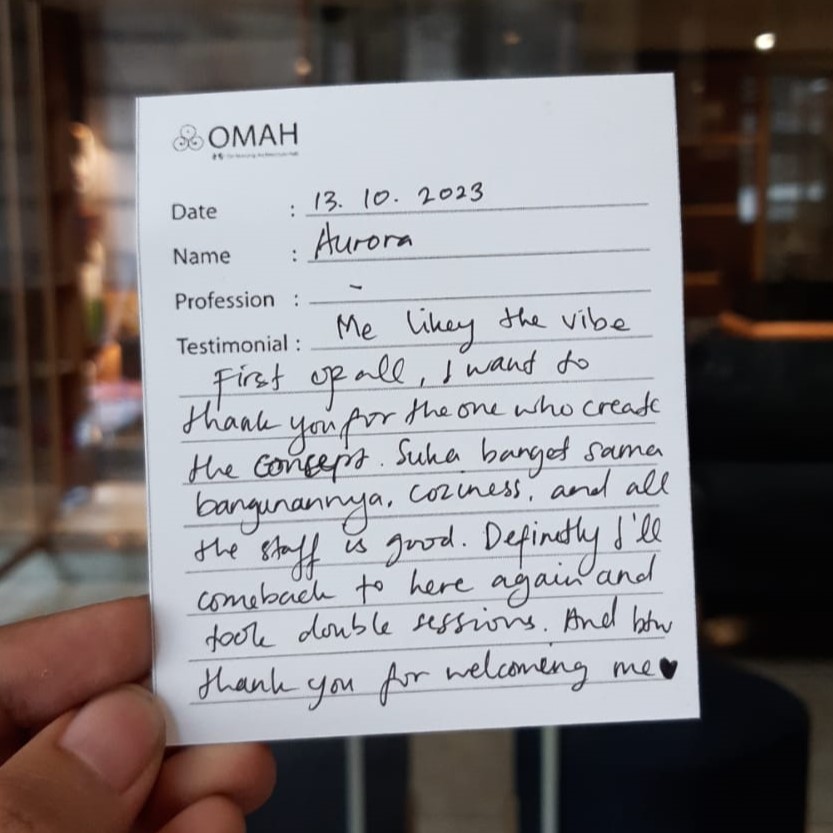 OMAH
Date : 13. 10. 2023
Name : Aurora
Profession : -
Testimonial : Me likey the vibe
First of all, I want to
thank you for the one who create
the concept. Suka banget sama
bangunannya, coziness, and all
the staff is good. Definetly I'll
comeback to here again and
took double sessions. And btw
thank you for welcoming me♥